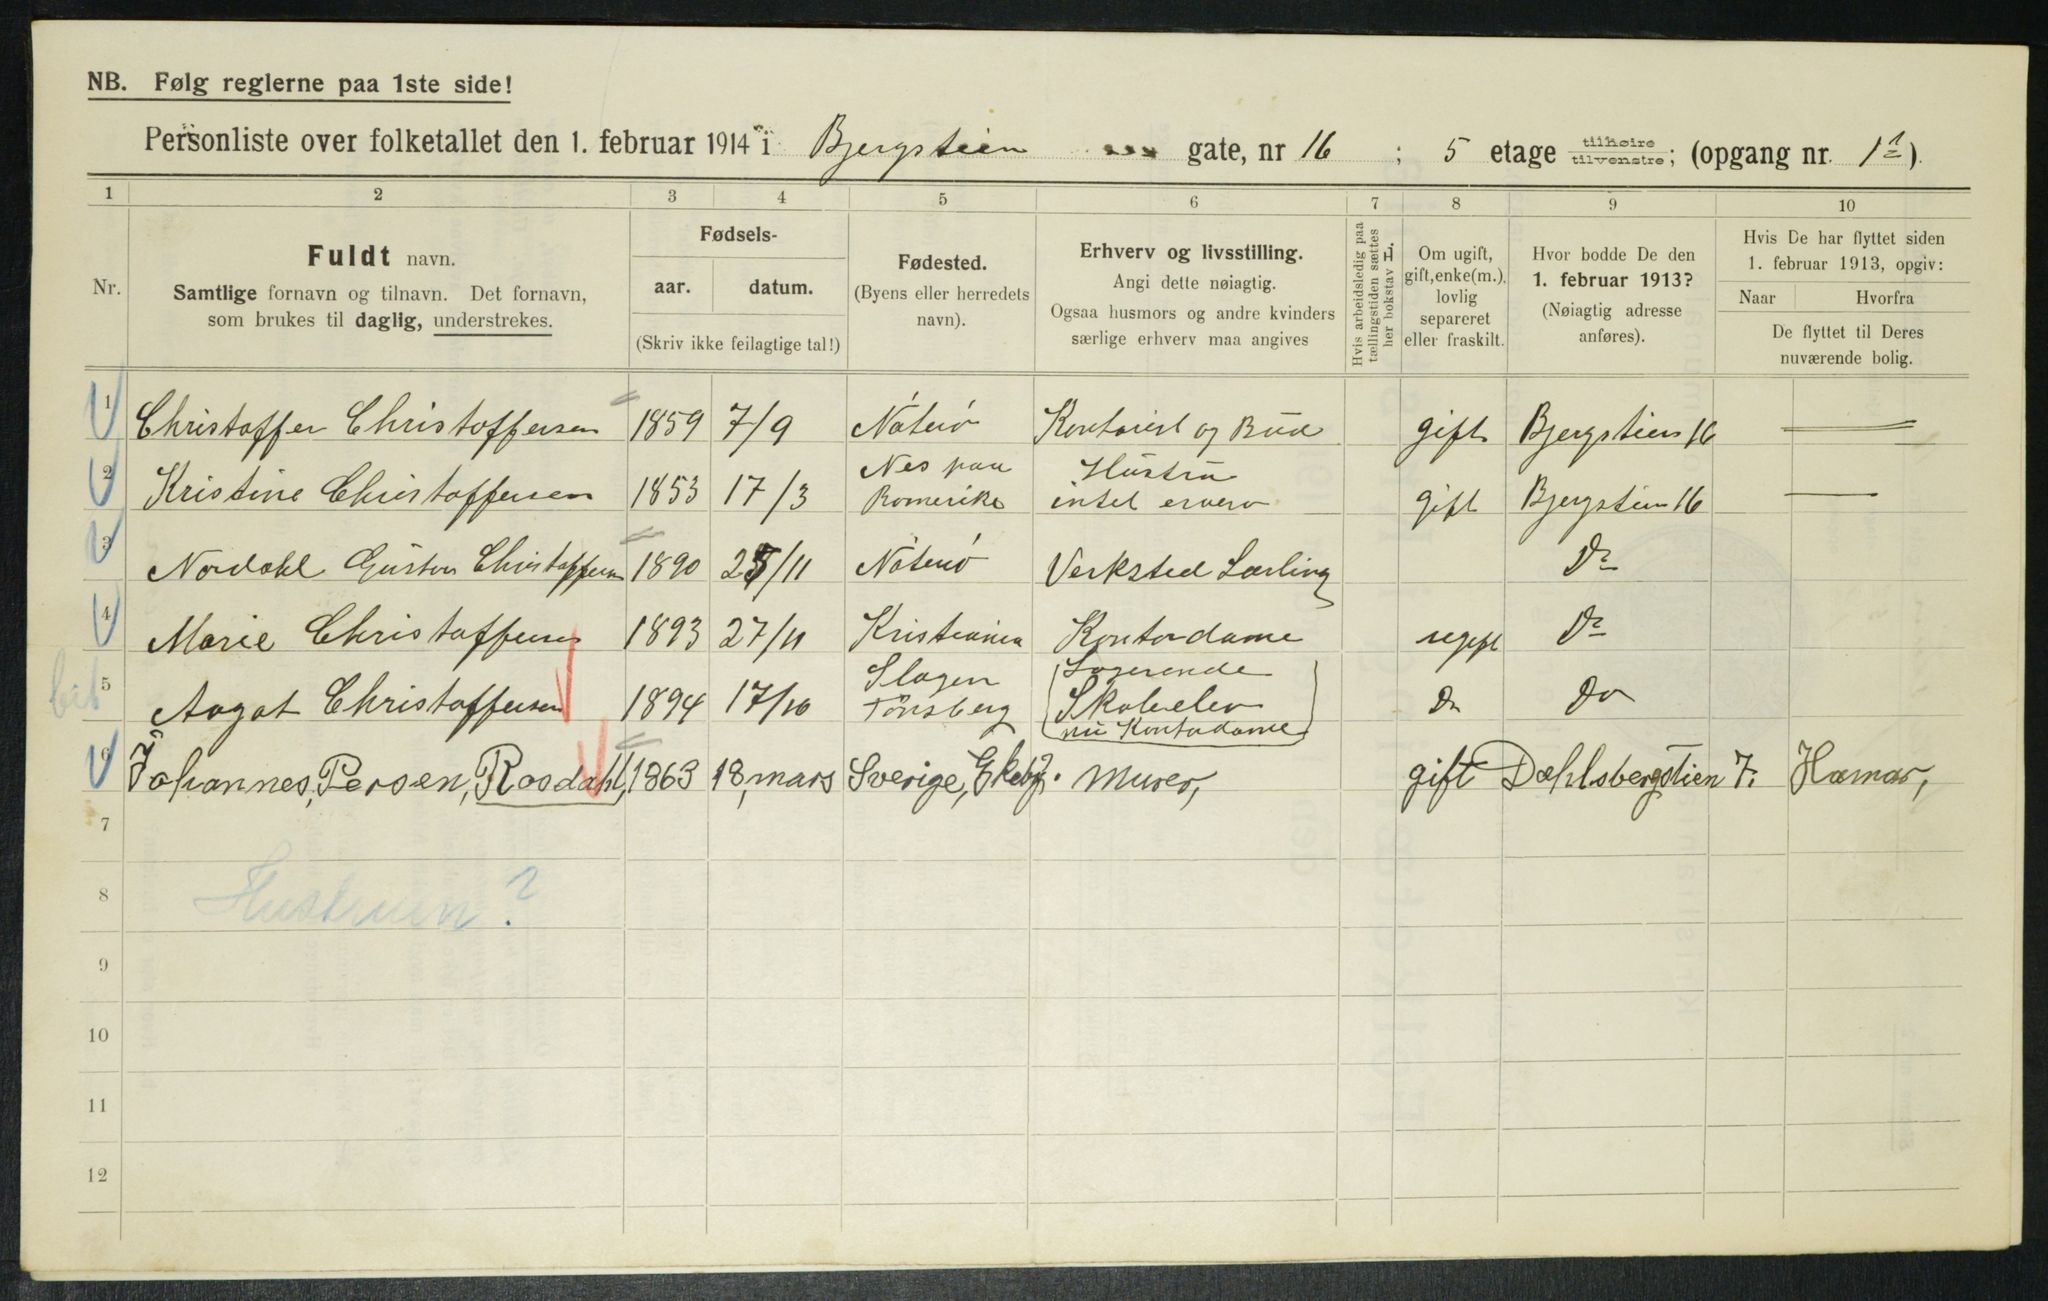 NB. Følg reglerne paa 1ste side!
Personliste over folketallet den 1. februar 1914 i Bjergstien gate, nr 16 ; 5 etage tilhøire tilvenstre; (opgang nr. 1).
1 2 3 4 5 6 7 8 9 10
Nr.
Fuldt navn.
Samtlige fornavn og tilnavn. Det fornavn,
som brukes til daglig, understrekes.
Fødsels-
aar. datum.
(Skriv ikke feilagtige tal!)
Fødested.
(Byens eller herredets
navn).
Erhverv og livsstilling.
Angi dette nøiagtig.
Ogsaa husmors og andre kvinders
særlige erhverv maa angives
Hvis arbeidsledig paa
tællingstiden sættes
her bokstav L.
Om ugift,
gift, enke(m.),
lovlig
separeret
eller fraskilt.
Hvor bodde De den
1. februar 1913?
(Nøiagtig adresse
anføres).
Hvis De har flyttet siden
1. februar 1913, opgiv:
Naar Hvorfra
De flyttet til Deres
nuværende bolig.
1 Christoffer Christoffersen 1859 7/9 Nøterø Kontorist og Bud gift Bjergstien 16 —
2 Kristine Christoffersen 1853 17/3 Nes paa Romerike Hustru intet erverv gift Bjergstien 16 —
3 Nordahl Gustav Christoffersen 1890 /11 Nøterø Verksted Lærling Do
4 Marie Christoffersen 1893 27/11 Kristiania Kontordame ugift Do
5 Aagot Christoffersen 1894 17/10 Slagen Tönsberg Logerende Skoleelev nu Kontordame Do Do
6 Johannes, Persen, Rosdahl, 1863 18, mars Sverige, Ekeby. Murer, gift Dæhlsbergstien 7. Hamar,
7
8 Hustruen?
9
10
11
12